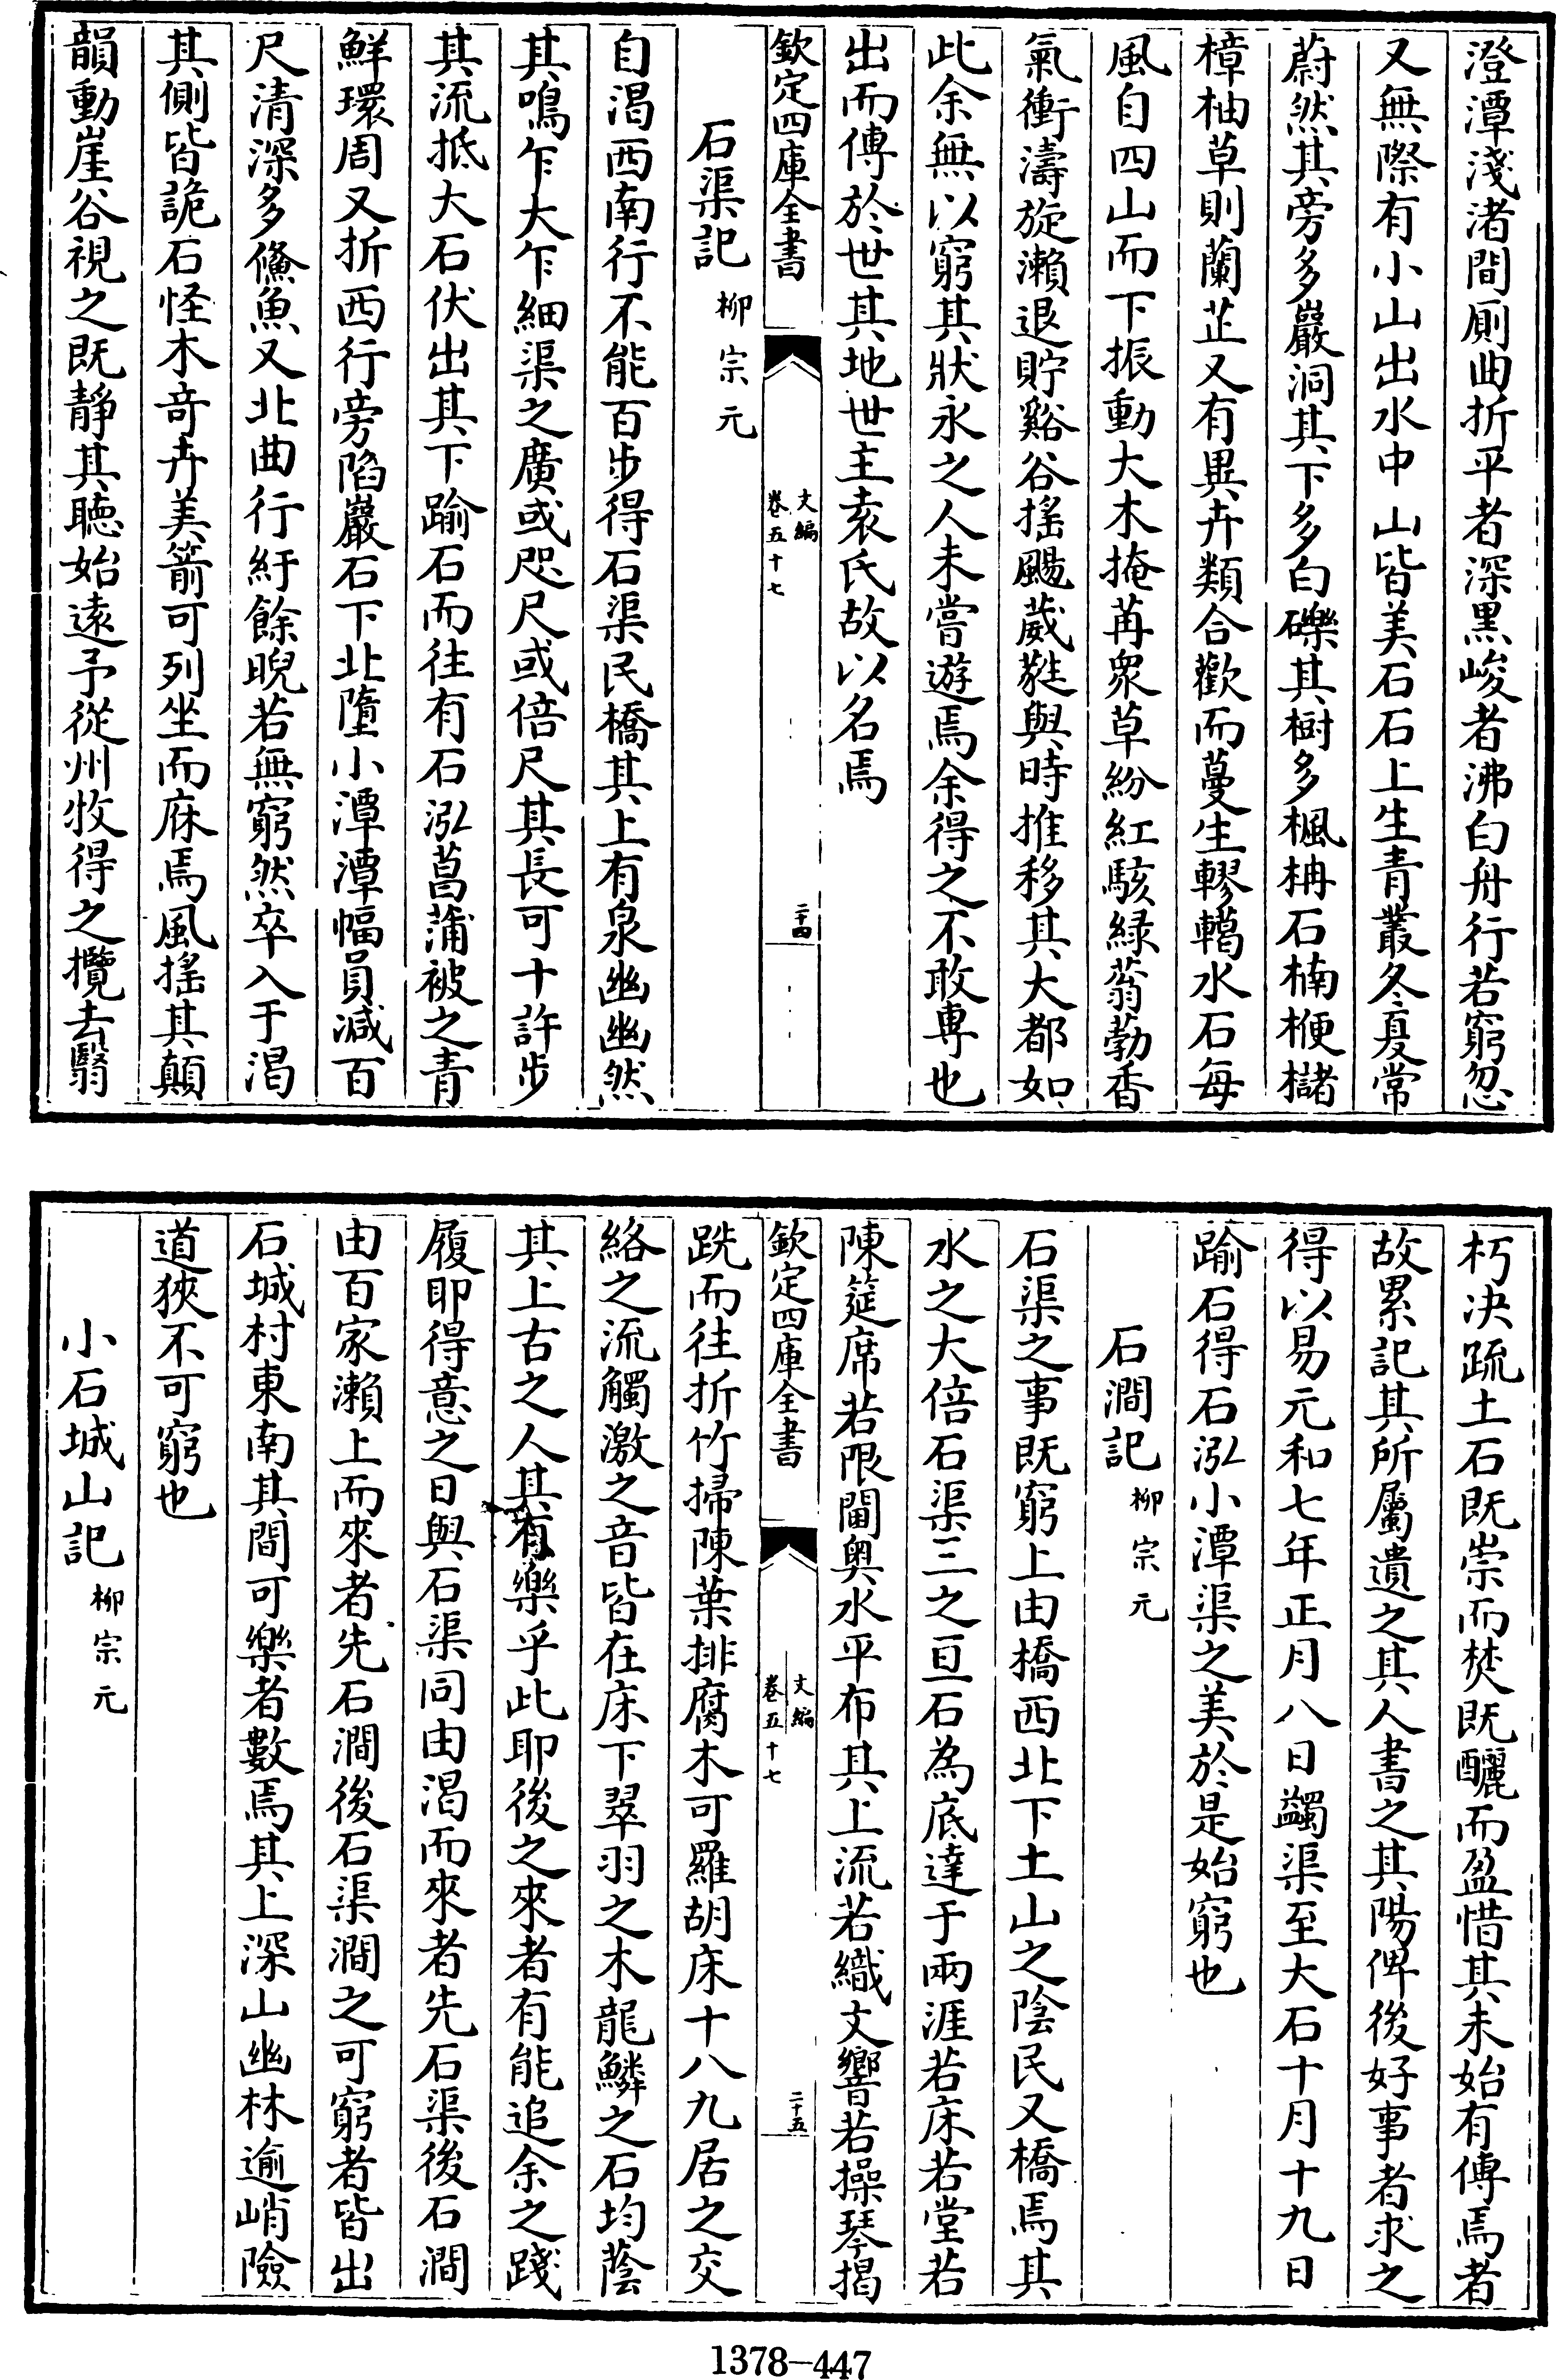 澄潭淺渚間厠曲折平者深黑峻者沸白舟行若窮忽
又無際有小山出水中山皆美石石上生青叢冬夏常
蔚然其旁多巖洞其下多白礫其樹多楓柟石楠楩櫧
樟柚草則蘭芷又有異卉類合歡而蔓生轇轕水石每
風自四山而下振動大木掩苒衆草紛紅駭緑蓊葧香
氣衝濤旋瀨退貯谿谷搖颺葳蕤與時推移其大都如
此余無以窮其狀永之人未嘗遊焉余得之不敢專也
出而傳於世其地世主袁氏故以名焉
欽定四庫全書
文編
卷五十七
二十四
石渠記 柳宗元
自渴西南行不能百步得石渠民橋其上有泉幽幽然
其鳴乍大乍細渠之廣或咫尺或倍尺其長可十許步
其流抵大石伏出其下踰石而往有石泓菖蒲被之青
鮮環周又折西行旁陷巖石下北墮小潭潭幅員减百
尺清深多鯈魚又北曲行紆餘睨若無窮然卒入于渴
其側皆詭石怪木奇卉美箭可列坐而庥焉風搖其顛
韻動崖谷視之既靜其聴始遠予從州牧得之攬去翳
朽决疏土石既崇而焚既釃而盈惜其未始有傳焉者
故累記其所屬遺之其人書之其陽俾後好事者求之
得以易元和七年正月八日蠲渠至大石十月十九日
踰石得石泓小潭渠之美於是始窮也
石澗記 柳宗元
石渠之事既窮上由橋西北下土山之陰民又橋焉其
水之大倍石渠三之亘石為底達于兩涯若床若堂若
陳筵席若限閫奥水平布其上流若織文響若操琴揭
欽定四庫全書
文編
卷五十七
二十五
跣而往折竹掃陳葉排腐木可羅胡床十八九居之交
絡之流觸激之音皆在床下翠羽之木龍鱗之石均蔭
其上古之人其有樂乎此耶後之來者有能追余之踐
履耶得意之日與石渠同由渴而來者先石渠後石澗
由百家瀨上而來者先石澗後石渠澗之可窮者皆出
石城村東南其間可樂者數焉其上深山幽林逾峭險
道狹不可窮也
小石城山記 柳宗元
1378—447